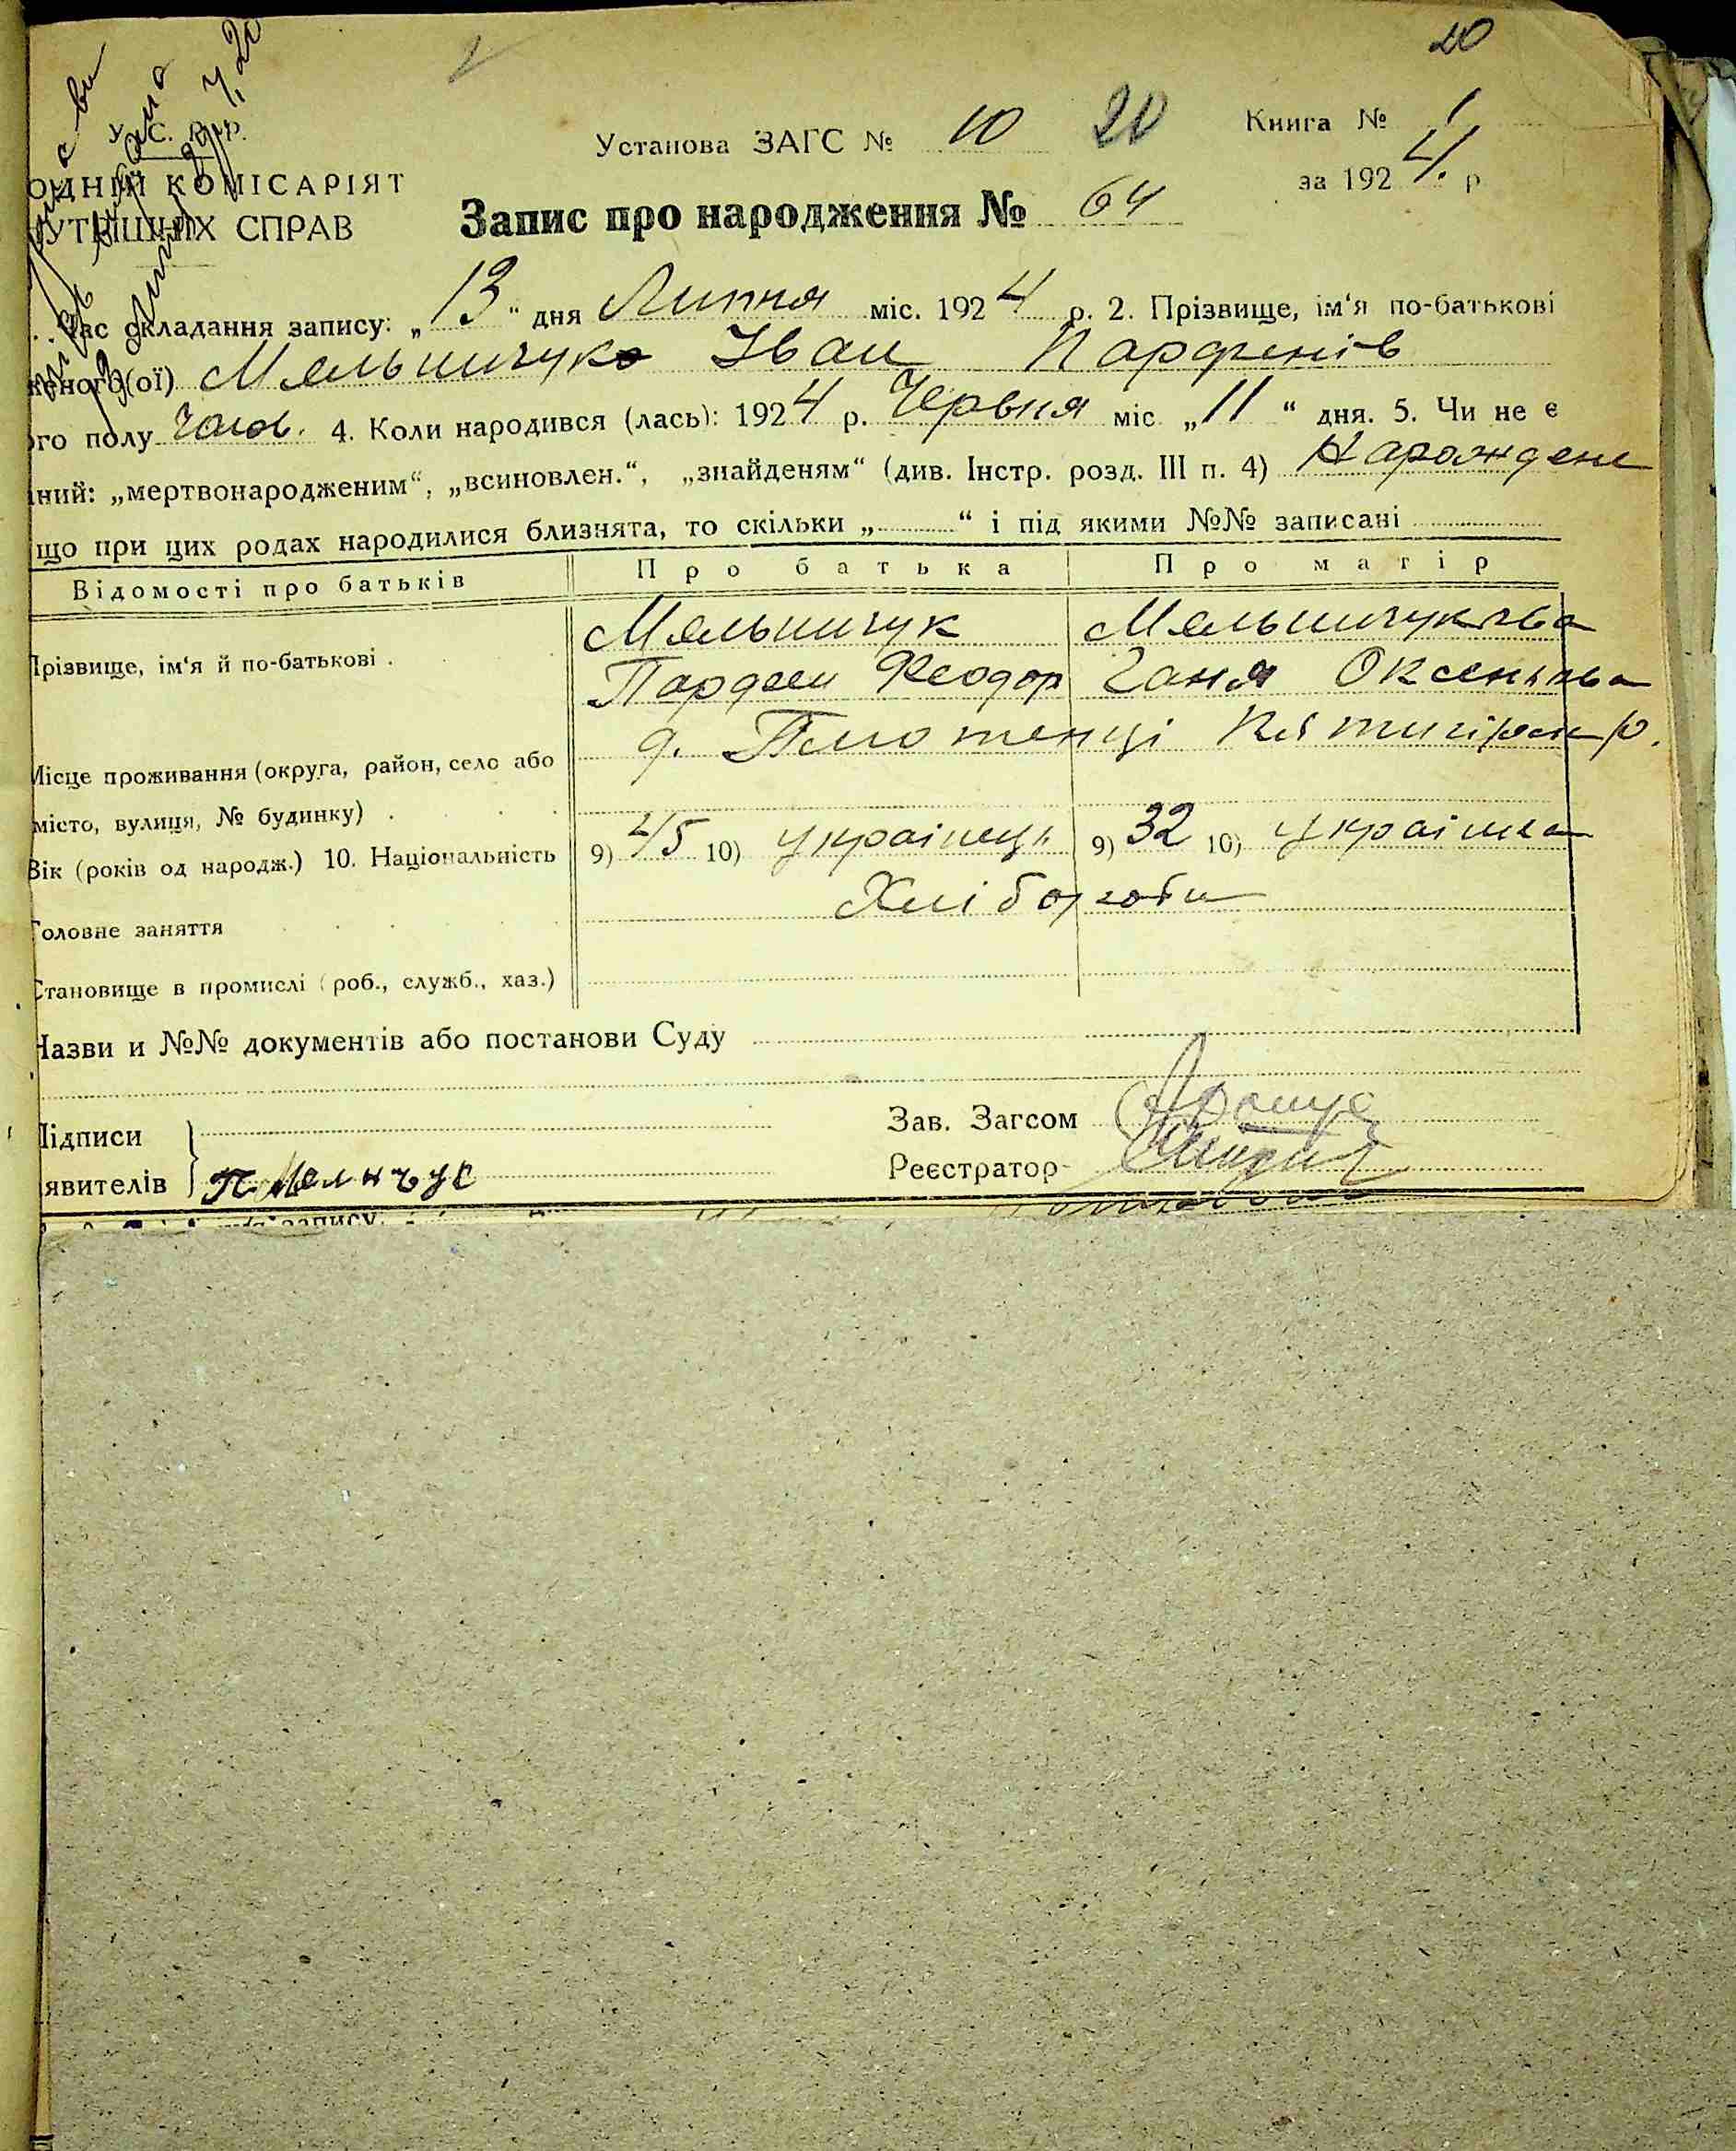 20
У. С. Р. Р.
ОДНІЙ КОМІСАРІЯТ
УТРІШНІХ СПРАВ
Установа ЗАГС № 10 20
Книга № 1
за 1924. р
Запис про народження № 64
Час складання запису: „13" дня Липня міс. 1924 р. 2. Прізвище, ім'я по-батькові
женого(ої) Мельничук Іван Парфенів
ого полу чолов. 4. Коли народився (лась): 1924 р. Червня міс „11" дня. 5. Чи не є
ний: „мертвонародженим", „всиновлен.", „знайденям" (див. Інстр. розд. III п. 4) Нарожден
що при цих родах народилися близнята, то скільки „ " і під якими №№ записані
Відомості про батьків Про батька Про матір
Прізвище, ім'я й по-батькові . Мельничук Мельничукова
Парфен Феодор Ганя Оксентьева
Місце проживання (округа, район, село або д. Плютенці
місто, вулиця, № будинку) .
Вік (років од народж.) 10. Національність 9) 45 10) українець 9) 32 10) українка
Головне заняття Хлібороби
Становище в промислі (роб., служб., хаз.)
Назви и №№ документів або постанови Суду
Підписи
явителів П. Мелнчук
Зав. Загсом
Реєстратор
запису.